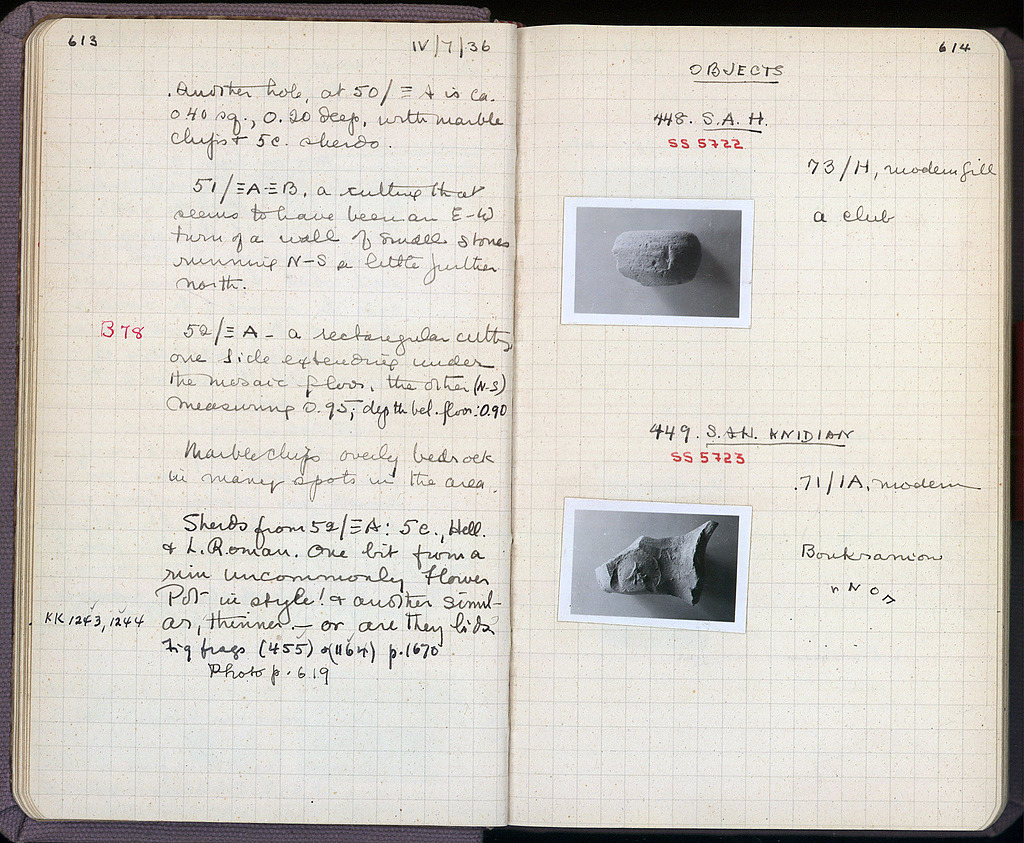 613
IV/7/36
Another hole, at 50/Ξ A is ca.
0.40 sq., 0.20 deep, with marble
chips & 5c. sherds.
51/ΞA-ΞB, a cutting that
seems to have been an E-W
turn of a wall of small stones
running N-S a little further
north.
B 78
52/Ξ A - a rectangular cutting
one side extending under
the mosaic floor, the other (N-S)
measuring 0.95; depth bel. floor: 0.90
Marble chips overly bedrock
in many spots in the area.
Sherds from 52/ΞA: 5c., Hell.
& L. Roman. One bit from a
rim uncommonly flower
Pot in style! & another simil-
KK 1243, 1244
ar, thinner — or are they lids?
Fig frags (455) & (1164) p. 1670
Photo p. 619
614
OBJECTS
448. S.A.H.
SS 5722
73/H, modern fill
a club
449. S.A.H. KNIDIAN
SS 5723
71/ΙΑ, modern
Boukranion